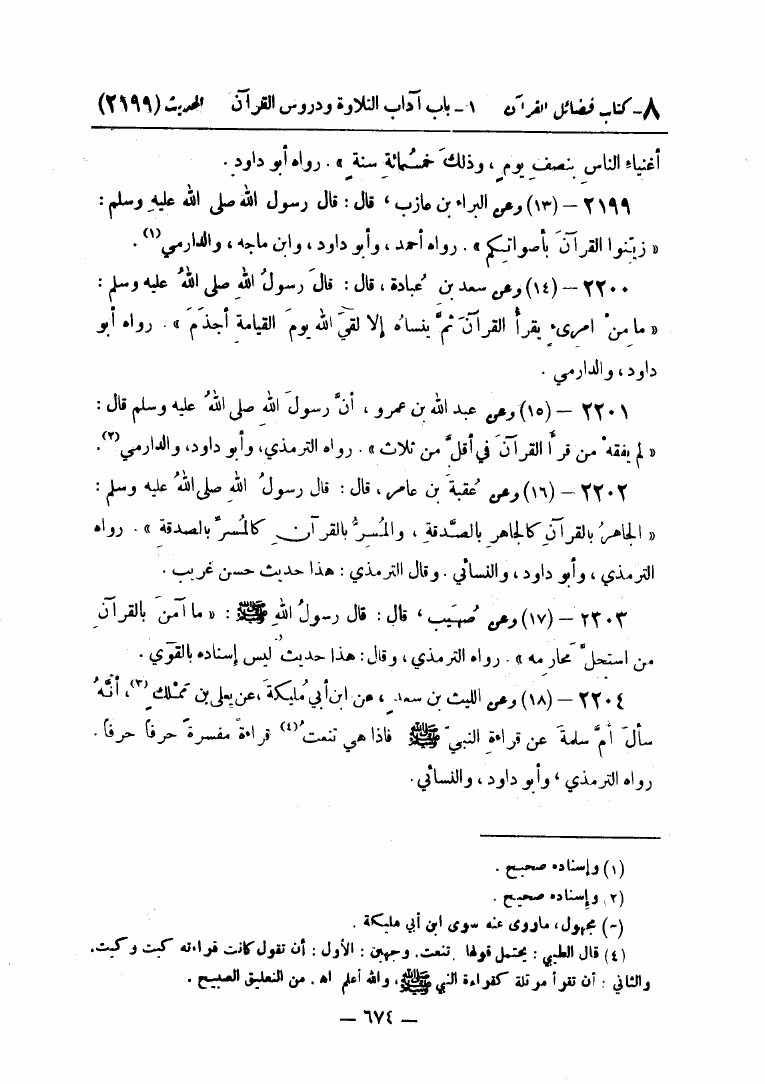 ٨- كتاب فضائل القرآن ١- باب آداب التلاوة ودروس القرآن الحديث (٢١٩٩)
أغنياء الناسِ بنصفِ يومٍ، وذلكَ خمسُمائةِ سنةٍ» . رواه أبو داود.
٢١٩٩ – (١٣) وعن البراء بن عازب، قال: قال رسول الله صلى الله عليهِ وسلم:
«زيّنوا القرآنَ بأصواتِكم» . رواه أحمد، وأبو داود، وابن ماجه، والدارمي(١).
٢٢٠٠ – (١٤) وعن سعد بن عُبادة، قال: قالَ رسولُ اللهِ صلى اللهُ عليه وسلم:
«ما منْ امرىءٍ يقرأُ القرآنَ ثمَّ ينساهُ إلا لقيَ اللهَ يومَ القيامةِ أجذَمَ» . رواه أبو
داود، والدارمي.
٢٢٠١ – (١٥) وعن عبد الله بن عمرو، أنَّ رسولَ اللهِ صلى اللهُ عليه وسلم قال:
«لم يفقهْ من قرأَ القرآنَ في أقلَّ من ثلاث» . رواه الترمذي، وأبو داود، والدارمي(٢).
٢٢٠٢ – (١٦) وعن عُقبةَ بن عامر، قال: قال رسولُ اللهِ صلى اللهُ عليه وسلم:
«الجاهرُ بالقرآنِ كالجاهرِ بالصَّدقةِ، والمُسِرُّ بالقرآنِ كالمُسرِّ بالصدقةِ» . رواه
الترمذي، وأبو داود، والنسائي. وقال الترمذي: هذا حديث حسن غريب.
٢٢٠٣ – (١٧) وعن صُهيب، قال: قال رسولُ اللهِ ﷺ: «ما آمنَ بالقرآنِ
من استحلَّ محارمه» . رواه الترمذي، وقال: هذا حديثٌ ليس إسناده بالقوّي.
٢٢٠٤ – (١٨) وعن الليث بن سعدٍ، عن ابن أبي مُليكةَ، عن يعلى بن تَمْلك(٣)، أنَّهُ
سألَ أمَّ سلمةَ عن قراءةِ النبيّ ﷺ فاذا هي تنعتُ(٤) قراءةً مفسرةً حرفاً حرفاً.
رواه الترمذي، وأبو داود، والنسائي.
(١) وإسناده صحيح.
(٢) وإسناده صحيح.
(٣) مجهول، ماروى عنه سوى ابن أبي مليكة.
(٤) قال الطيبي: يحتمل قولها تنعت. وجهين: الأول: أن تقول كانت قراءته كيت وكيت.
والثاني: أن تقرأ مرتلة كقراءة النبي ﷺ، والله أعلم اه. من التعليق الصبيح.
– ٦٧٤ –